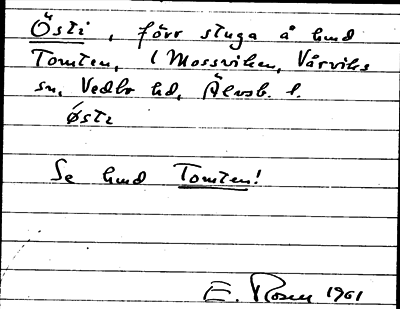 Östi, förr stuga å hmd
Tomten, l Mossviken, Vårviks
sn, Vedbo hd, Älvsb. l.
Östi
Se hmd Tomten!
E. Rosen 1961